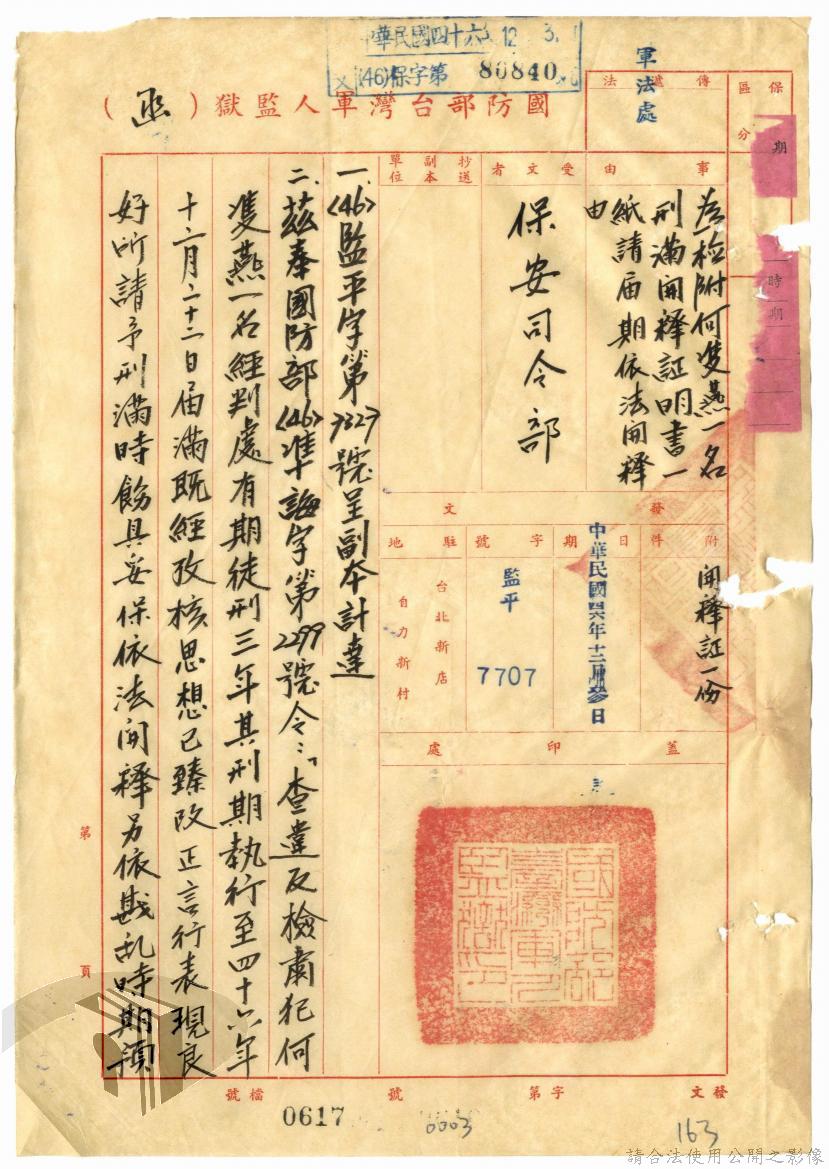 中華民國四十六 12 3
(46)保字第 80840
軍法處
國防部台灣軍人監獄（函）
傳遞法
保區分
期
時期
事由
為檢附何隻燕一名
刑滿開釋証明書一
紙請屆期依法開釋
由
受文者
保安司令部
抄送副本單位
發文
附件
開釋証一份
日期
中華民國四六年十二月叁日
字號
監平
7707
駐地
台北新店
自力新村
蓋印處
國防部臺灣軍人監獄印
一、(46)監平字第7327號呈副本計達
二、茲奉國防部(46)準誨字第2299號令：「查違反檢肅犯何
隻燕一名經判處有期徒刑三年其刑期執行至四十六年
十二月二十二日屆滿既經攷核思想已臻改正言行表現良
好所請予刑滿時飭具妥保依法開釋另依戡乱時期預
第 頁
發文 字第 號
檔號
0617
0003
163
請合法使用公開之影像